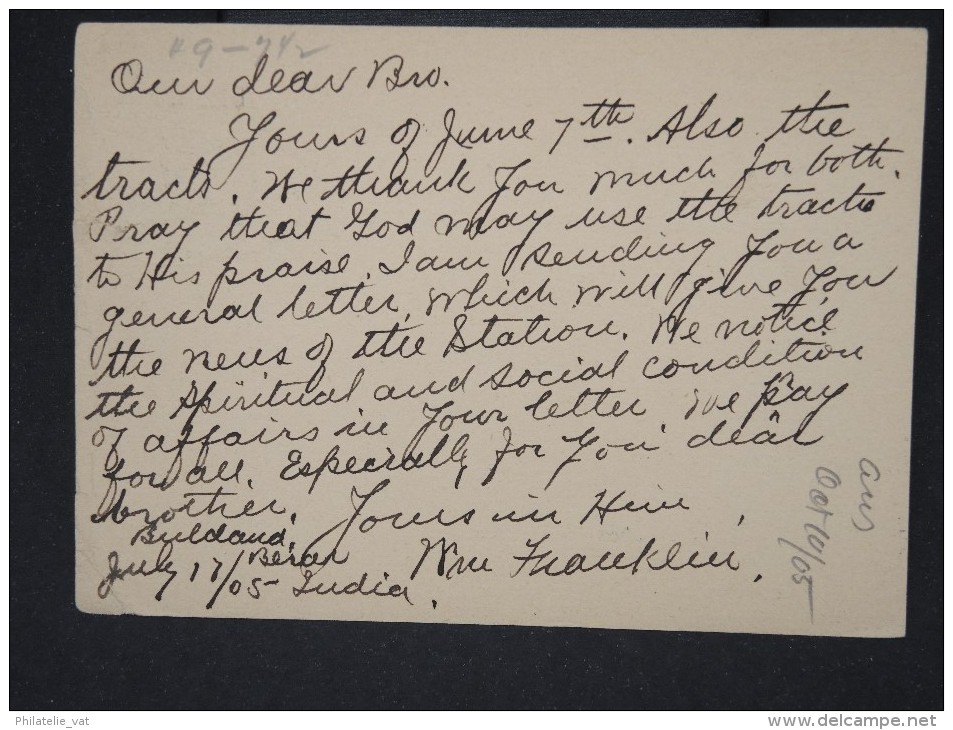 49-742
Our dear Bro.
Yours of June 7th. Also the
tracts. We thank You much for both.
Pray that God may use the tracts
to His praise. I am sending You a
general letter, which will give You
the news of the Station. We notice
the spiritual and social condition
of affairs in Your letter we Pray
for all. Especially for You dear
brother. Yours in Him,
Buldana, Wm Franklin.
July 17/05 Berar
India.
ans
Oct 10/05
Philatelie_vat
www.delcampe.net